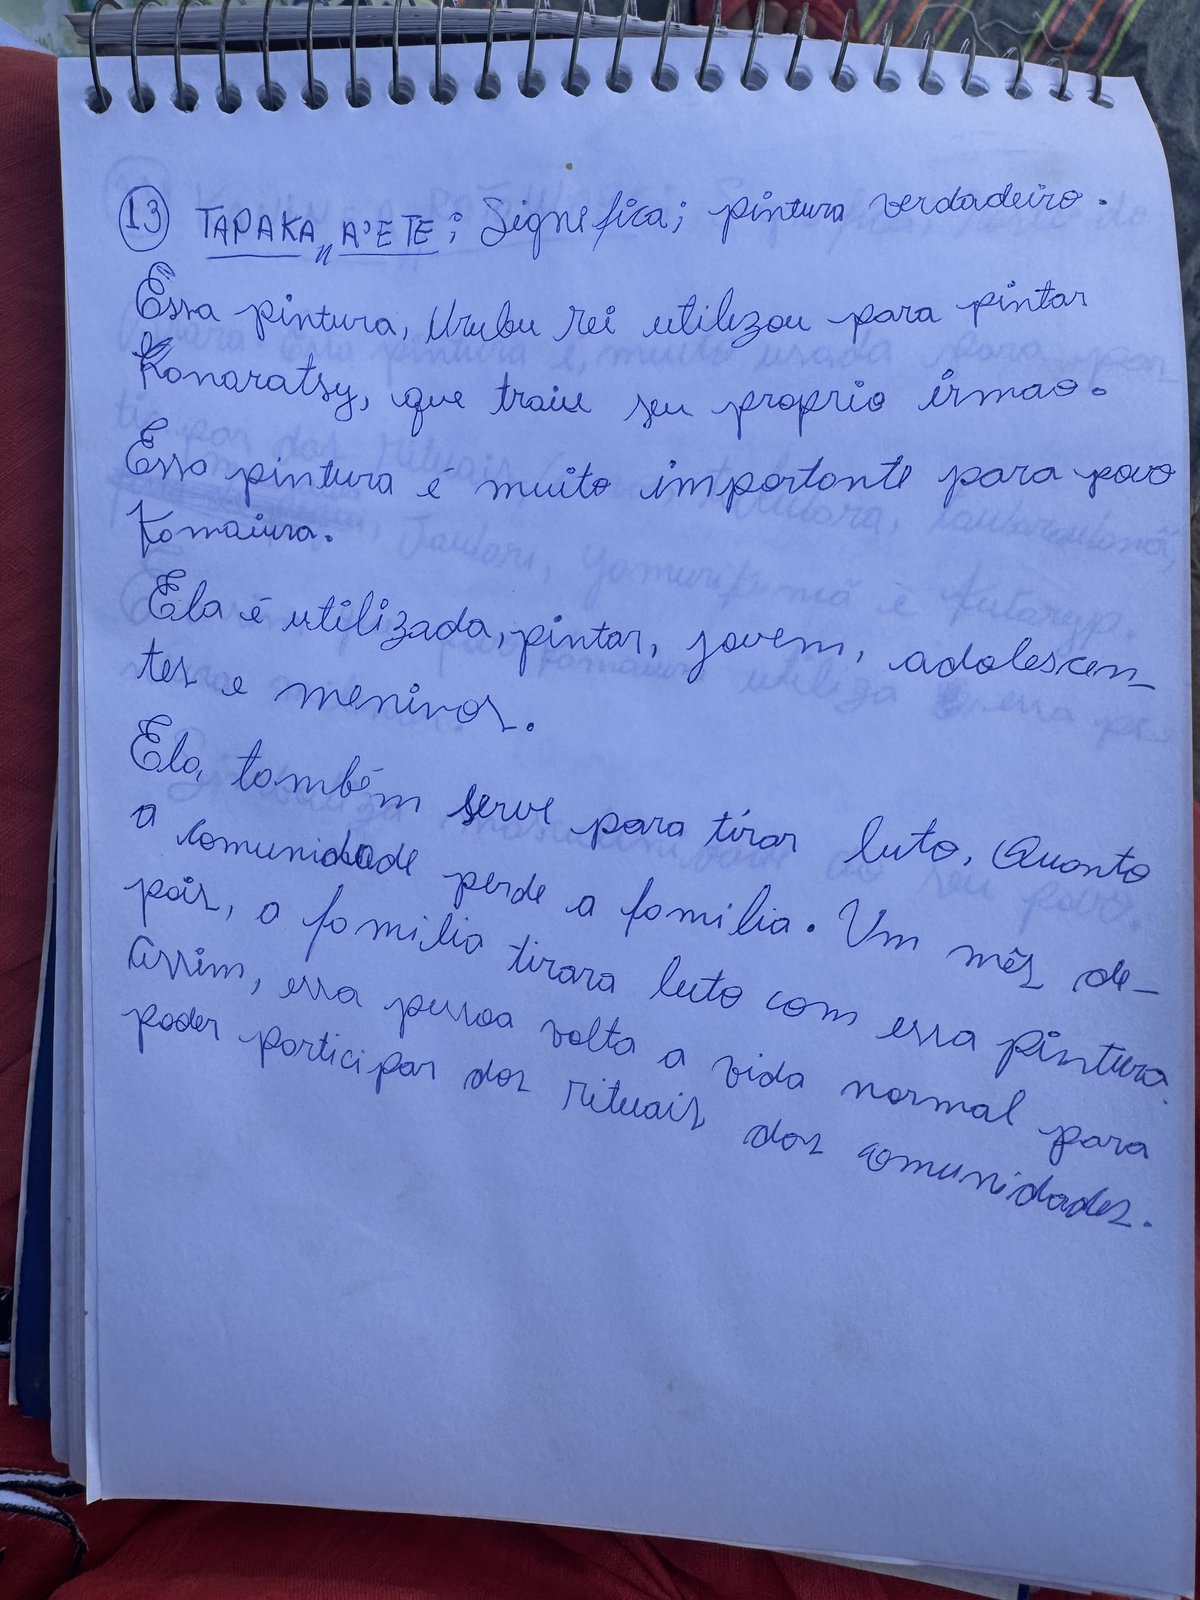 13 TAPAKA A'ETE; Signefica; pintura verdadeiro.
Essa pintura, Urubu rei utilizou para pintar
Kanaratsy, que traiu seu proprio irmao.
Essa pintura é muito importante para povo
Kamaiura.
Ela é utilizada, pintar, jovem, adolescen-
tes e meninos.
Ela, também serve para tirar luto. Quanto
a comunidade perde a familia. Um mês de-
pois, a familia tirara luto com essa pintura.
Assim, essa pessoa volta a vida normal para
poder participar dos rituais das comunidades.